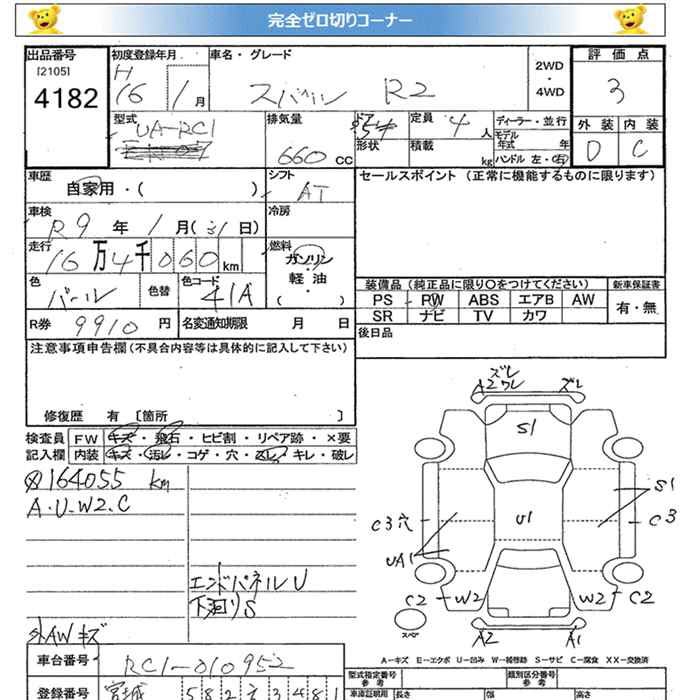 完全ゼロ切りコーナー
出品番号
[2105]
4182
初度登録年月
H
16 / 1月
車名・グレード
スバル R2
2WD
・
4WD
評価点
3
外装 内装
D C
型式
UA-RC1
排気量
660 CC
ドア
形状
定員 4人
積載 kg
ディーラー・並行
モデル
年式 年
ハンドル 左・右
車歴
自家用・( )
シフト
AT
セールスポイント (正常に機能するものに限ります)
車検
R9年 1月(31日)
冷房
走行
16万4千060km
燃料
ガソリン
・
軽油
( )
色
パール
色替
色コード
41A
装備品 (純正品に限り○をつけてください)
新車保証書
PS PW ABS エアB AW
SR ナビ TV カワ
有・無
R券 9910円
名変通知期限 月 日
後日品
注意事項申告欄(不具合内容等は具体的に記入して下さい)
修復歴 有 [箇所 ]
検査員
記入欄
FW キズ・飛石・ヒビ割・リペア跡・×要
内装 キズ・汚レ・コゲ・穴・スレ・キレ・破レ
164055 km
A・U・W2・C
エンドパネル U
下廻り S
外AWキズ
ズレ
A2 ワレ
ズレ
S1
S1
C3穴
U1
C3
UA1
C2
W2
W2
C2
A2
A1
スペア
A−キズ E−エクボ U−凹み W−補修跡 S−サビ C−腐食 XX−交換済
車台番号
RC1-010952
登録番号
宮城
型式指定番号
類別区分番号
参考
参考
車庫証明用
長さ
幅
高さ